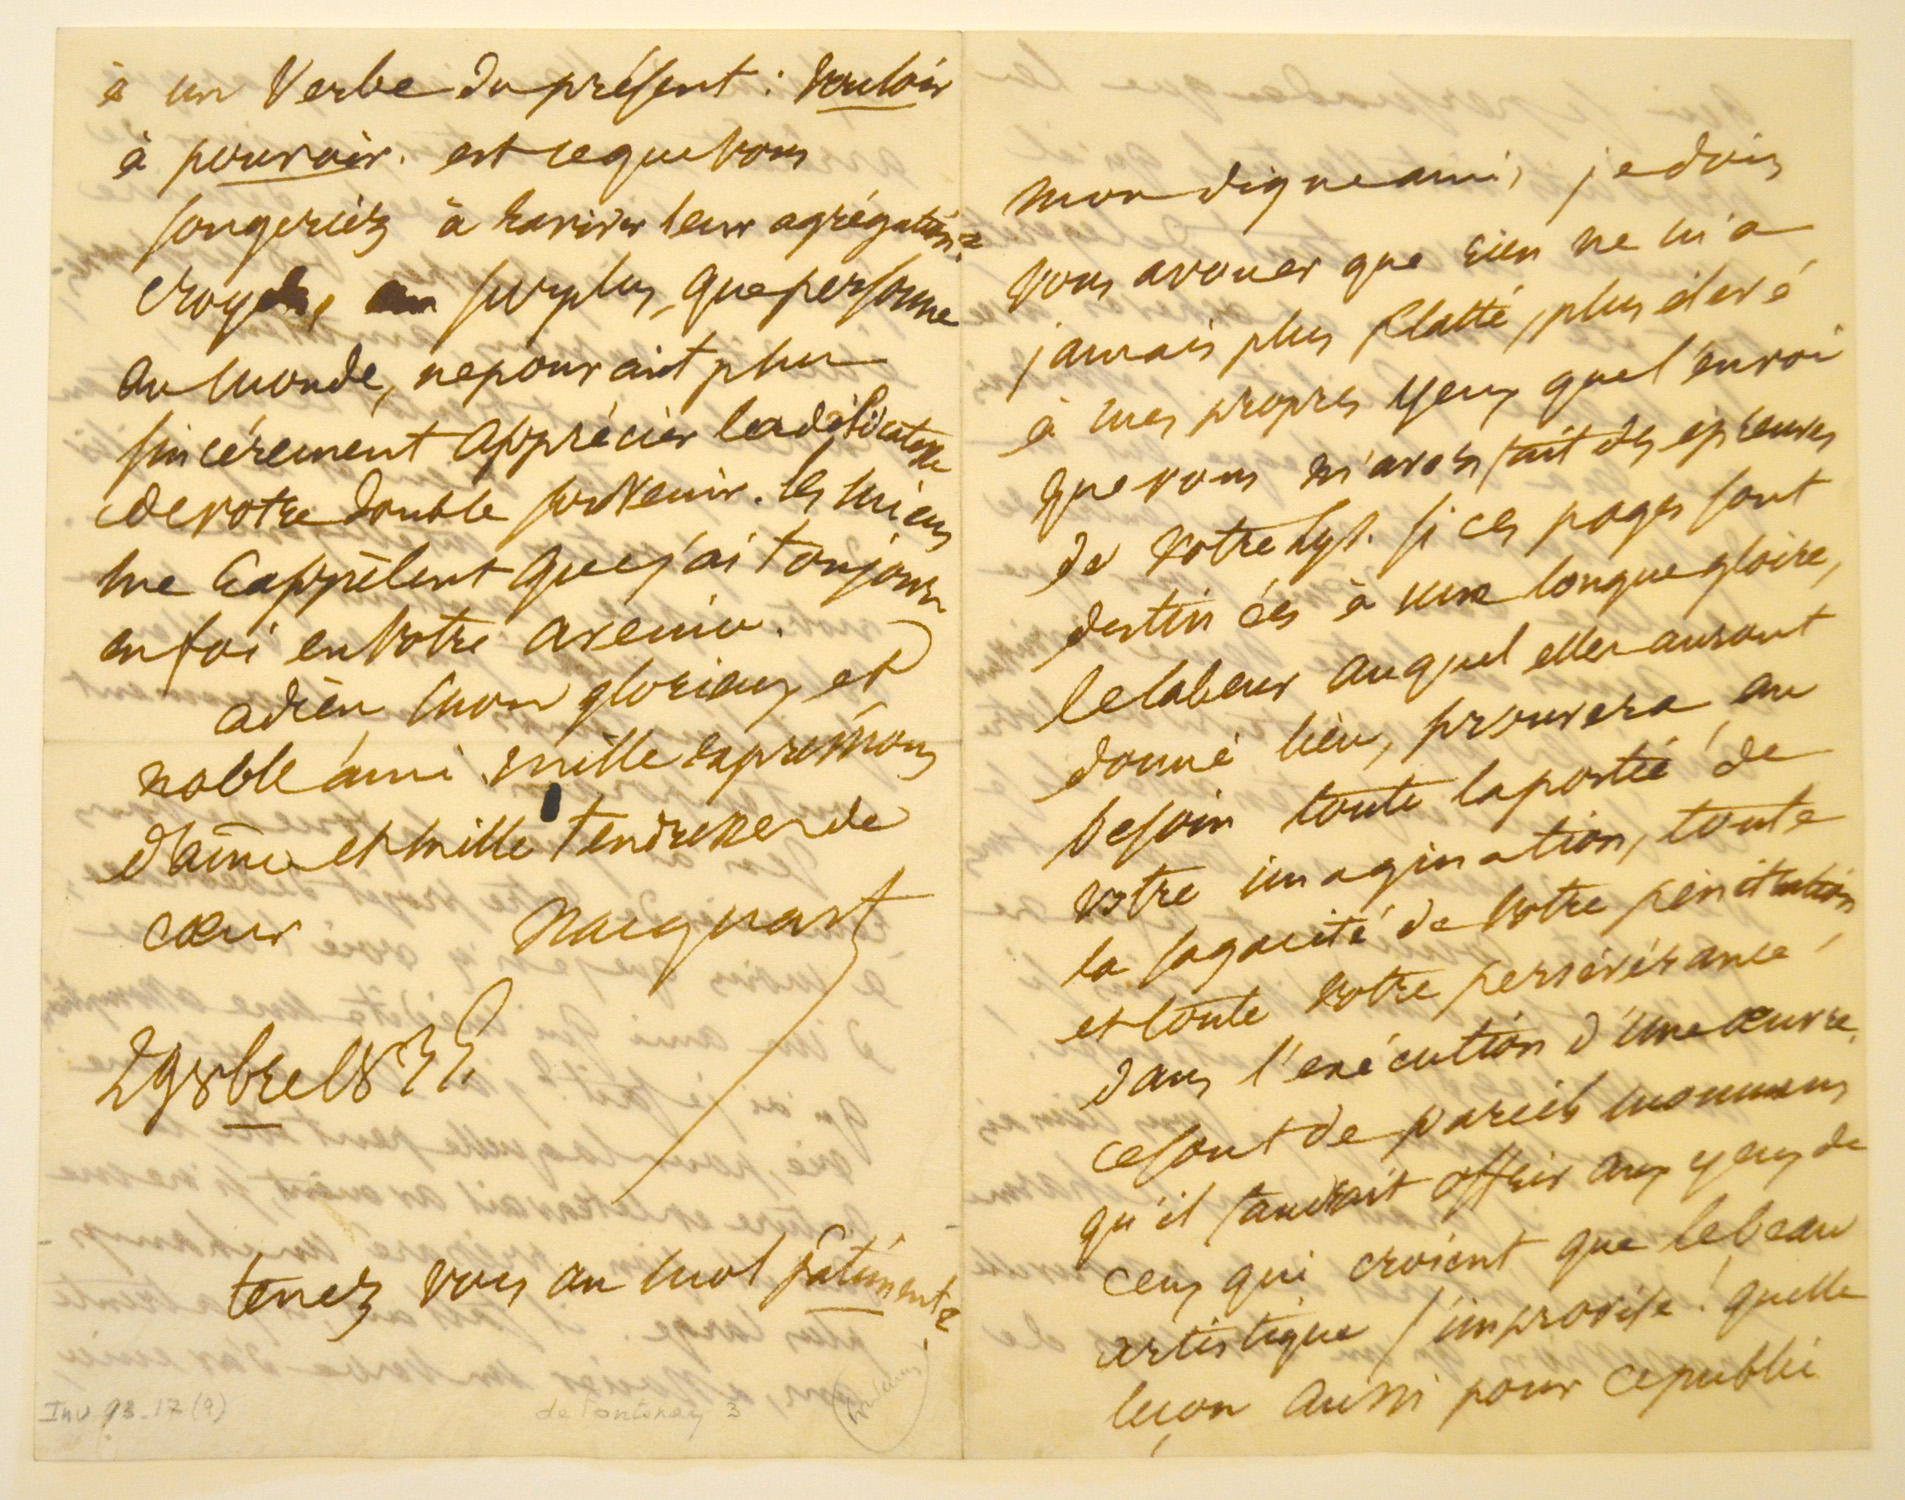 à un verbe du présent : vouloir
à pouvoir. est ce que vous
songeriez à raviver leur agrégation?
croyez, au surplus, que personne
au monde, ne pourait plus
sincérement apprécier la délicatesse
de votre double souvenir. les miens
me rappèlent que j'ai toujours
eu foi en votre avenir.
adieu, mon glorieux et
noble ami mille expressions
d'âme et mille tendresses de
cœur Nacquart
29 8bre 1835.
tenez vous au mot
Inv 93-17 (9)
de Fontenay 3
mon digne ami, je dois
vous avouer que rien ne m'a
jamais plus flatté, plus élevé
à mes propres yeux que l'envoi
que vous m'avez fait des epreuves
de votre lys. si ces pages sont
destinées à une longue gloire,
le labeur auquel elles auront
donné lieu, prouvera au
besoin toute la portée de
votre imagination, toute
la sagacité de votre pénétration,
et toute votre persévérance
dans l'exécution d'une œuvre.
ce sont de pareils monumens
qu'il faudrait offrir aux yeux de
ceux qui croient que le beau
artistique s'improvise! quelle
leçon aussi pour ce public